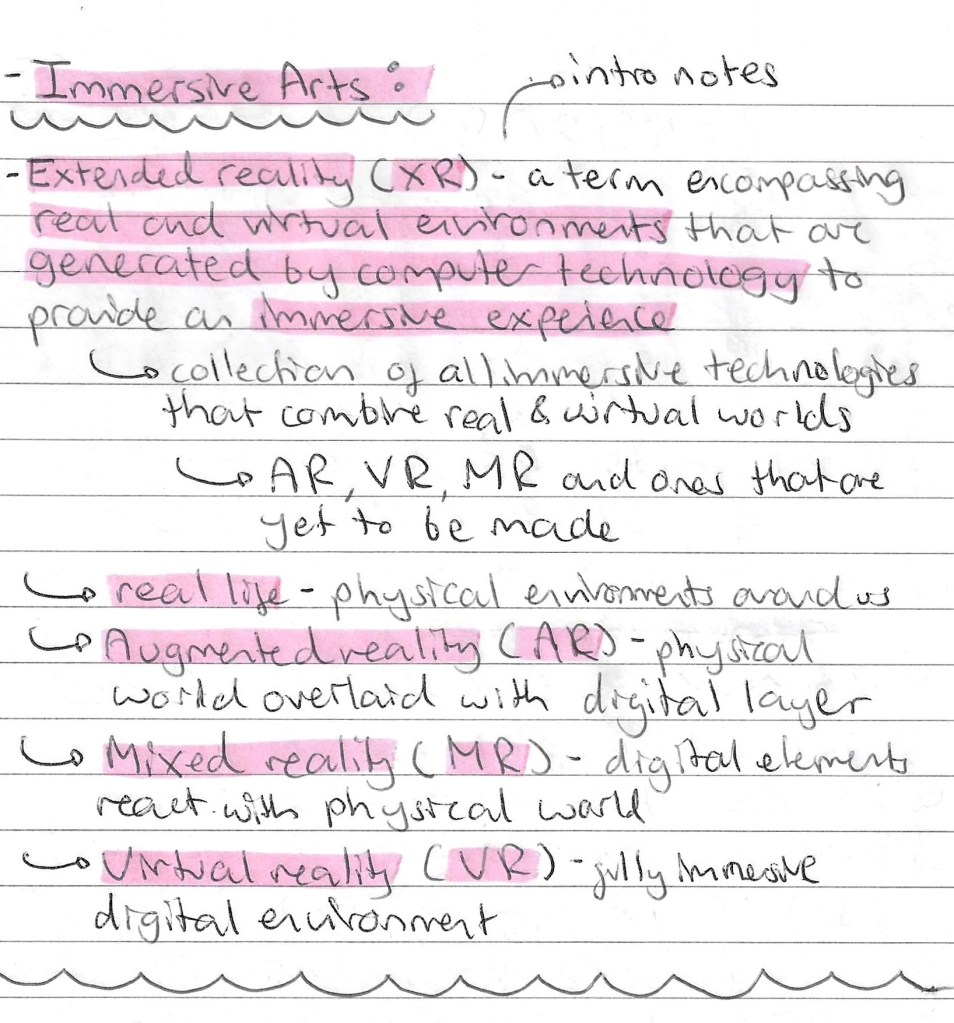 - Immersive Arts :
intro notes
- Extended reality (XR) - a term encompassing
real and virtual environments that are
generated by computer technology to
provide an immersive experience
collection of all immersive technologies
that combine real & virtual worlds
AR, VR, MR and ones that are
yet to be made
real life - physical environments around us
Augmented reality (AR) - physical
world overlaid with digital layer
Mixed reality (MR) - digital elements
react with physical world
Virtual reality (VR) - fully immersive
digital environment